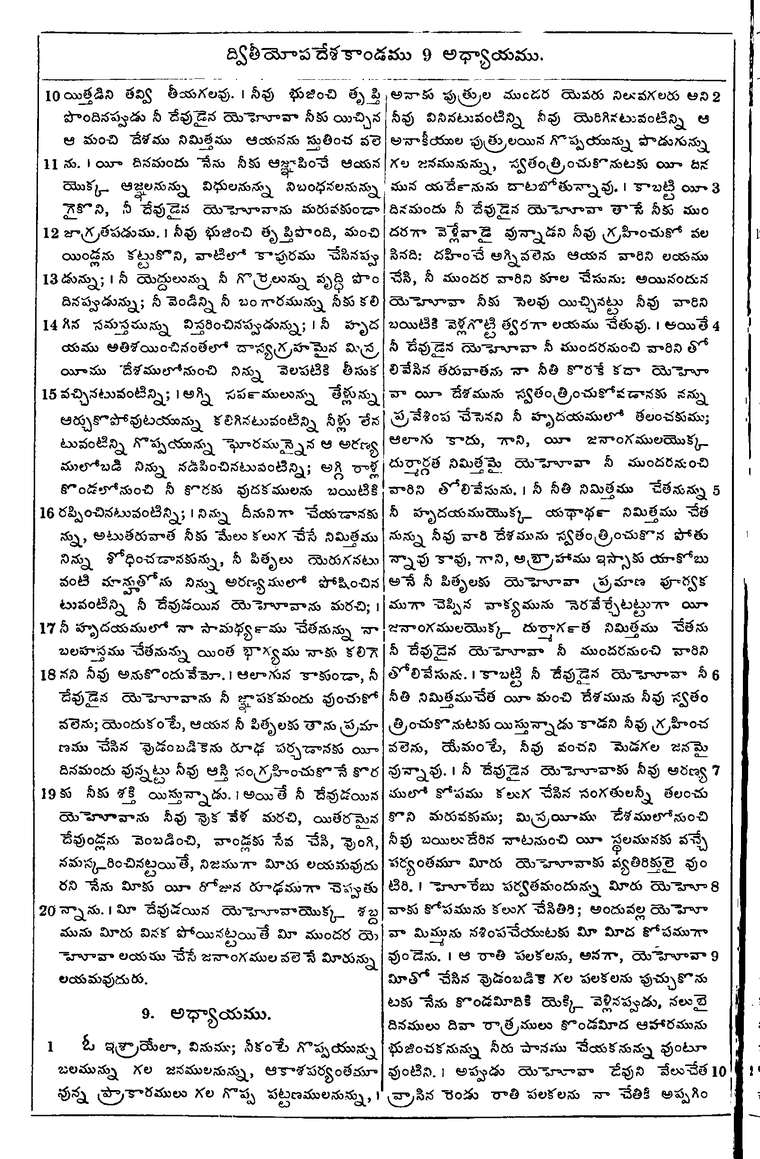 ద్వితీయోపదేశకాండము 9 అధ్యాయము.
10 యిత్తడిని తవ్వి తీయగలవు. । నీవు భుజించి తృప్తి
పొందినప్పుడు నీ దేవుడైన యెహోవా నీకు యిచ్చిన
ఆ మంచి దేశము నిమిత్తము ఆయనను స్తుతించ వలె
11 ను. । యీ దినమందు నేను నీకు ఆజ్ఞాపించే ఆయన
యొక్క ఆజ్ఞలనున్ను విధులనున్ను నిబంధనలనున్ను
గైకొని, నీ దేవుడైన యెహోవాను మరువకుండా
12 జాగ్రతపడుము. । నీవు భుజించి తృప్తిపొంది, మంచి
యిండ్లను కట్టుకొని, వాటిలో కాపురము చేసినప్పు
13 డున్ను; । నీ యెద్దులున్ను నీ గొర్రెలున్ను వృద్ధి పొం
దినప్పుడున్ను; నీ వెండిన్ని నీ బంగారమున్ను నీకు కలి
14 గిన సమస్తమున్ను విస్తరించినప్పుడున్ను; । నీ హృద
యము అతిశయించినంతలో దాస్యగ్రహమైన మిస్ర
యీము దేశములోనుంచి నిన్ను వెలపటికి తీసుక
15 వచ్చినటువంటిన్ని; । అగ్ని సర్పములున్ను తేళ్లున్ను
ఆర్చుకొపోవుటయున్ను కలిగినటువంటిన్ని నీళ్లు లేన
టువంటిన్ని గొప్పయున్ను ఘోరమున్నైన ఆ అరణ్య
ములోబడి నిన్ను నడిపించినటువంటిన్ని; అగ్గి రాళ్ల
కొండలోనుంచి నీ కొరకు వుదకములను బయిటికి
16 రప్పించినటువంటిన్ని; । నిన్ను దీనునిగా చేయడానకు
న్ను, అటుతరువాత నీకు మేలు కలుగ చేసే నిమిత్తము
నిన్ను శోధించడానకున్ను, నీ పితృలు యెరుగనటు
వంటి మాన్హుతోను నిన్ను అరణ్యములో పోషించిన
టువంటిన్ని నీ దేవుడయిన యెహోవాను మరచి; ।
17 నీ హృదయములో నా సామర్థ్యము చేతనున్ను నా
బలహస్తము చేతనున్ను యింత భాగ్యము నాకు కలిగె
18 నని నీవు అనుకొందువేమో. । ఆలాగున కాకుండా, నీ
దేవుడైన యెహోవాను నీ జ్ఞాపకమందు వుంచుకో
వలెను; యెందుకంటే, ఆయన నీ పితృలకు తాను ప్రమా
ణము చేసిన వొడంబడికెను రూఢ పర్చడానకు యీ
దినమందు వున్నట్టు నీవు ఆస్తి సంగ్రహించుకొనే కొర
19 కు నీకు శక్తి యిస్తున్నాడు. । అయితే నీ దేవుడయిన
యెహోవాను నీవు వొక వేళ మరచి, యితరమైన
దేవుండ్లను వెంబడించి, వాండ్లకు సేవ చేసి, వొంగి,
నమస్కరించినట్టయితే, నిజముగా మీరు లయమవుదు
రని నేను మీకు యీ రోజున రూఢముగా చెప్పుతు
20 న్నాను. । మీ దేవుడయిన యెహోవాయొక్క శబ్ద
మును మీరు వినక పోయినట్టయితే మీ ముందర యె
హోవా లయము చేసే జనాంగముల వలెనే మీరున్ను
లయమవుదురు.
9. అధ్యాయము.
1 ఓ ఇశ్రాయేలా, వినుము; నీకంటే గొప్పయున్ను
బలమున్ను గల జనములనున్ను, ఆకాశపర్యంతమూ
వున్న ప్రాకారములు గల గొప్ప పట్టణములనున్ను, ।
అనాకు పుత్రుల ముందర యెవరు నిలువగలరు అని 2
నీవు వినినటువంటిన్ని నీవు యెరిగినటువంటిన్ని ఆ
అనాకీయుల పుత్రులయిన గొప్పయున్ను పొడుగున్ను
గల జనమునున్ను, స్వతంత్రించుకొనుటకు యీ దిన
మున యర్దేనును దాటబోతున్నావు. । కాబట్టి యీ 3
దినమందు నీ దేవుడైన యెహోవా తానే నీకు ముం
దరగా వెళ్లేవాడై వున్నాడని నీవు గ్రహించుకో వల
సినది: దహించే అగ్నివలెను ఆయన వారిని లయము
చేసి, నీ ముందర వారిని కూల చేసును: అయినందున
యెహోవా నీకు సెలవు యిచ్చినట్టు నీవు వారిని
బయిటికి వెళ్లగొట్టి త్వరగా లయము చేతువు. । అయితే 4
నీ దేవుడైన యెహోవా నీ ముందరనుంచి వారిని తో
లివేసిన తరువాతను నా నీతి కొరకే కదా యెహో
వా యీ దేశమును స్వతంత్రించుకోవడానకు నన్ను
ప్రవేశింప చేసెనని నీ హృదయములో తలంచకుము;
ఆలాగు కాదు, గాని, యీ జనాంగములయొక్క
దుర్మార్గత నిమిత్తమై యెహోవా నీ ముందరనుంచి
వారిని తోలివేసును. । నీ నీతి నిమిత్తము చేతనున్ను 5
నీ హృదయముయొక్క యథార్థ నిమిత్తము చేత
నున్ను నీవు వారి దేశమును స్వతంత్రించుకొన పోతు
న్నావు కావు, గాని, అబ్రాహాము ఇస్సాకు యాకోబు
అనే నీ పితృలకు యెహోవా ప్రమాణ పూర్వక
ముగా చెప్పిన వాక్యమును నెరవేర్చేటట్టుగా యీ
జనాంగములయొక్క దుర్మార్గత నిమిత్తము చేతను
నీ దేవుడైన యెహోవా నీ ముందరనుంచి వారిని
తోలివేసును. । కాబట్టి నీ దేవుడైన యెహోవా నీ 6
నీతి నిమిత్తముచేత యీ మంచి దేశమును నీవు స్వతం
త్రించుకొనుటకు యిస్తున్నాడు కాడని నీవు గ్రహించ
వలెను, యేమంటే, నీవు వంచని మెడగల జనమై
వున్నావు. । నీ దేవుడైన యెహోవాకు నీవు అరణ్య 7
ములో కోపము కలుగ చేసిన సంగతులన్నీ తలంచు
కొని మరువకుము; మిస్రయీము దేశములోనుంచి
నీవు బయిలుదేరిన నాటనుంచి యీ స్థలమునకు వచ్చే
పర్యంతమూ మీరు యెహోవాకు వ్యతిరిక్తులై వుం
టిరి. । హూరేబు పర్వతమందున్ను మీరు యెహో 8
వాకు కోపమును కలుగ చేసితిరి; అందువల్ల యెహో
వా మిమ్మును నశింపచేయుటకు మీ మీద కోపముగా
వుండెను. । ఆ రాతి పలకలను, అనగా, యెహోవా 9
మీతో చేసిన వొడంబడికె గల పలకలను పుచ్చుకొను
టకు నేను కొండమీదికి యెక్కి వెళ్లినప్పుడు, నలుభై
దినములు దివా రాత్రములు కొండమీద ఆహారమును
భుజించకనున్ను నీరు పానము చేయకనున్ను వుంటూ
వుంటిని. । అప్పుడు యెహోవా దేవుని వేలుచేత 10
వ్రాసిన రెండు రాతి పలకలను నా చేతికి అప్పగిం